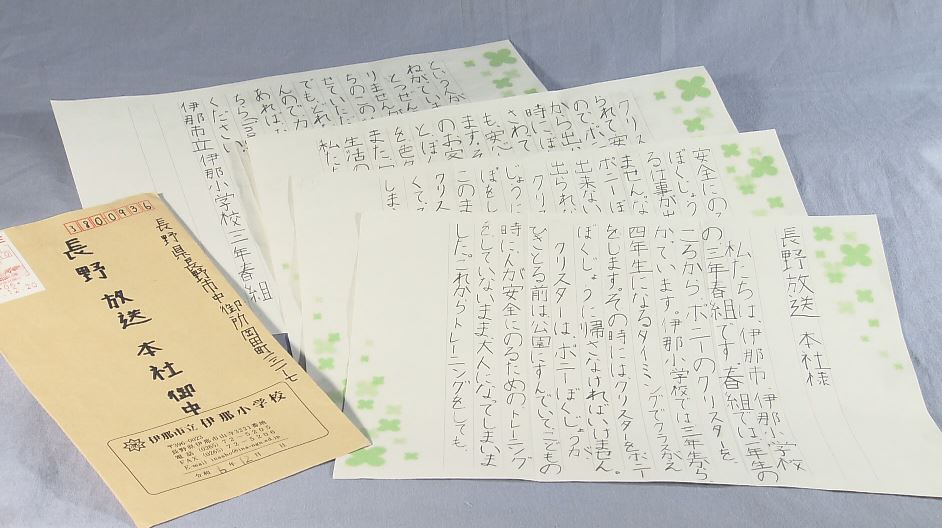 長野放送 本社様
私たちは、伊那市、伊那小学校
の三年春組です。春組では、一年生の
ころから、ポニーのクリスターを、
かています。伊那小学校では三年生から、
四年生になるタイミングでクラスがえ
をします。その時にはクリスターをポニー
ぼくじょうに帰さなければいけません。
クリスターは、ポニーぼくじょうが
ひきとる前は公園にすんでいて、こどもの
時に人が安全にのるためのトレーニング
をしていないまま、大人になってしまいま
した。これからトレーニングをしても、
安全にの
ぼくじょう
る仕事が出
ませんな
ポニーぼ
出来ない
出られ
クリ
しょうに
ぼをし
このま
クリス
くて、
しま
クリス
られて安
のでポン
から出
時にぼ
さわて
も、安心
ます。そ
のお安
とぼん
を色々
また、
生活の
私た
という
ねがてい
とつぜん
りません
ちのこの
せていた
でもどれ
んのでカ
あれば、
ちら
ください
伊那市立伊那小学校三年春組
3800936
長野県長野市中御所岡田町三一七
長野放送 本社 御中
伊那市立伊那小学校
〒396-0023
長野県伊那市山寺3221番地
電話 (0265) 72-5205
FAX (0265) 72-5206
令和 6年 12月 日